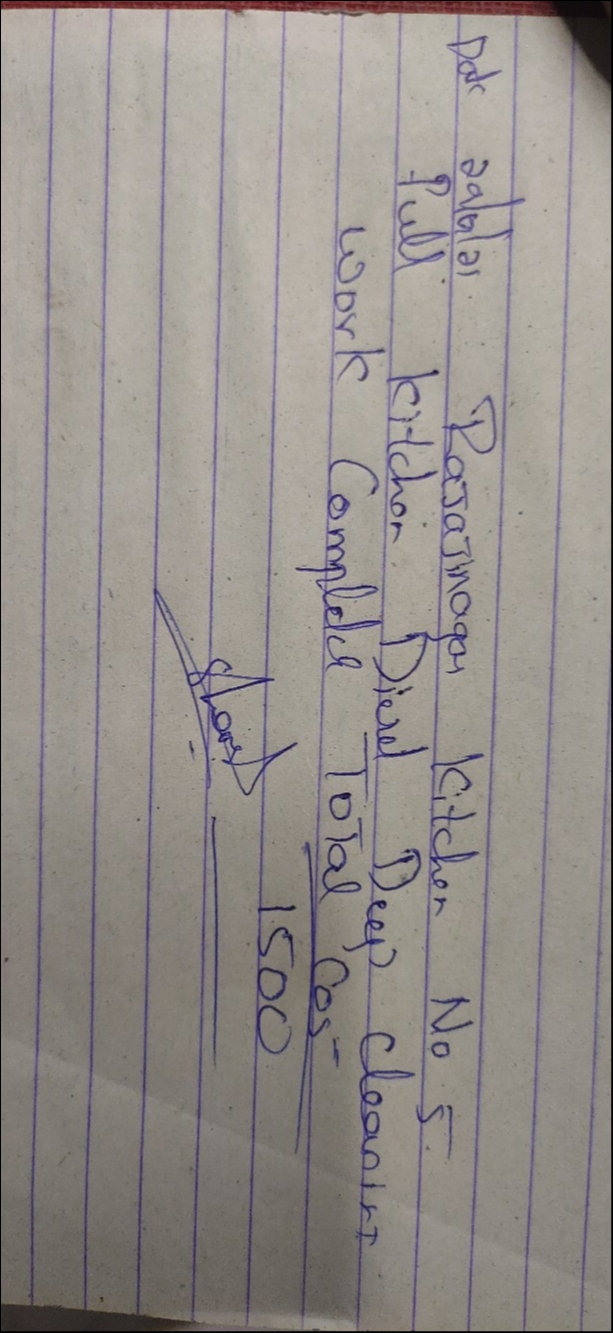 Date 22/6/21 Rajajinagar Kitchen No 5
Full Kitchen Diesel Deep Cleanint
Work Completed Total Cos-
1500